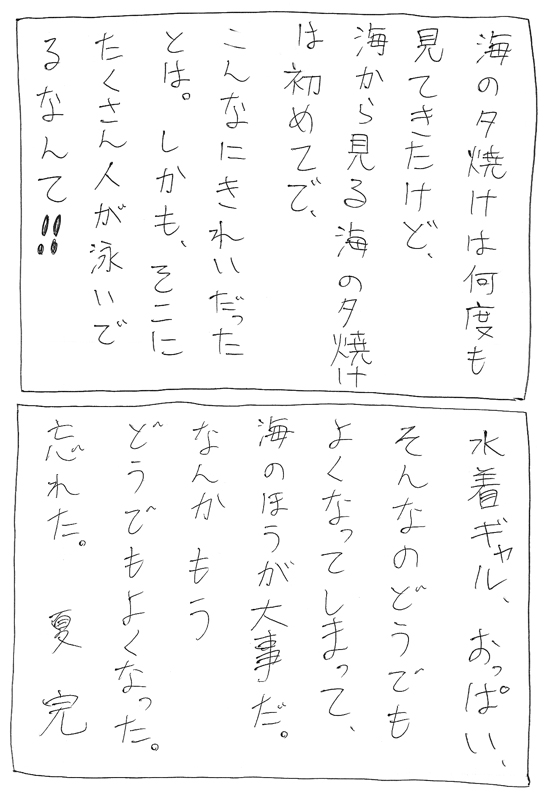 海の夕焼けは何度も
見てきたけど、
海から見る海の夕焼け
は初めてで、
こんなにきれいだった
とは。しかも、そこに
たくさん人が泳いで
るなんて!!
水着ギャル、おっぱい、
そんなのどうでも
よくなってしまって、
海のほうが大事だ。
なんかもう
どうでもよくなった。
忘れた。 夏 完